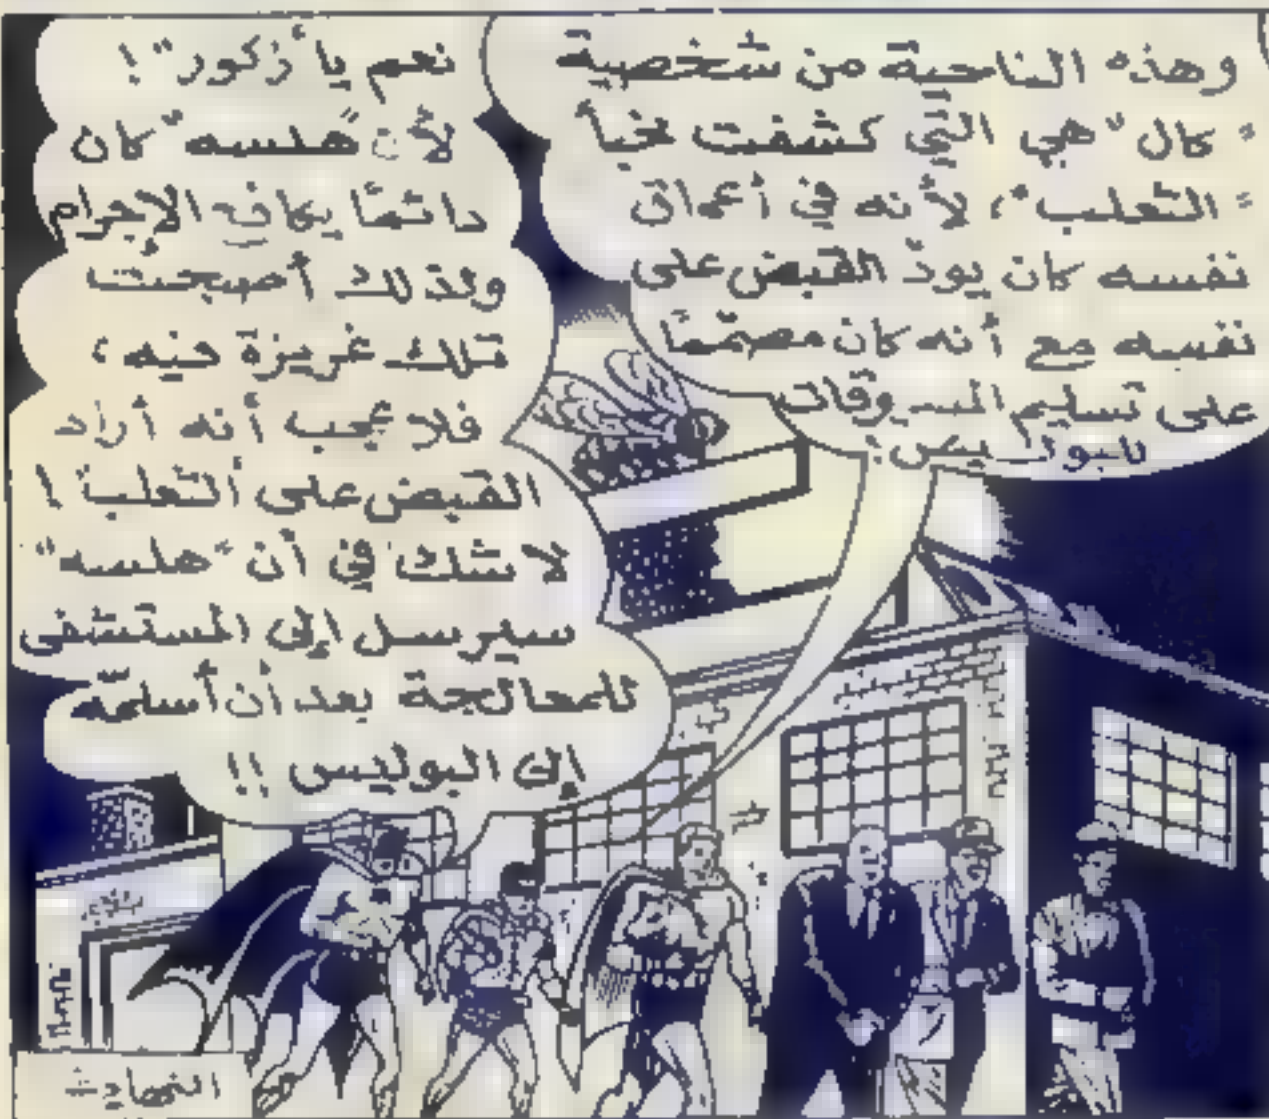 وهذه الناحية من شخصية
"كال" هي التي كشفت مخبأ
"الثعلب"، لأنه في أعماق
نفسه كان يودّ القبض على
نفسه مع أنه كان مصمّمًا
على تسليم المسروقات
للبوليس!
نعم يا "زكور"!
لأن "هلسه" كان
دائمًا يكافح الإجرام
ولذلك أصبحت
تلك غريزة فيه،
فلا عجب أنه أراد
القبض على "الثعلب"!
لا شك في أن "هلسه"
سيرسل إلى المستشفى
للمعالجة بعد أن أسلمّه
إلى البوليس!!
النهاية